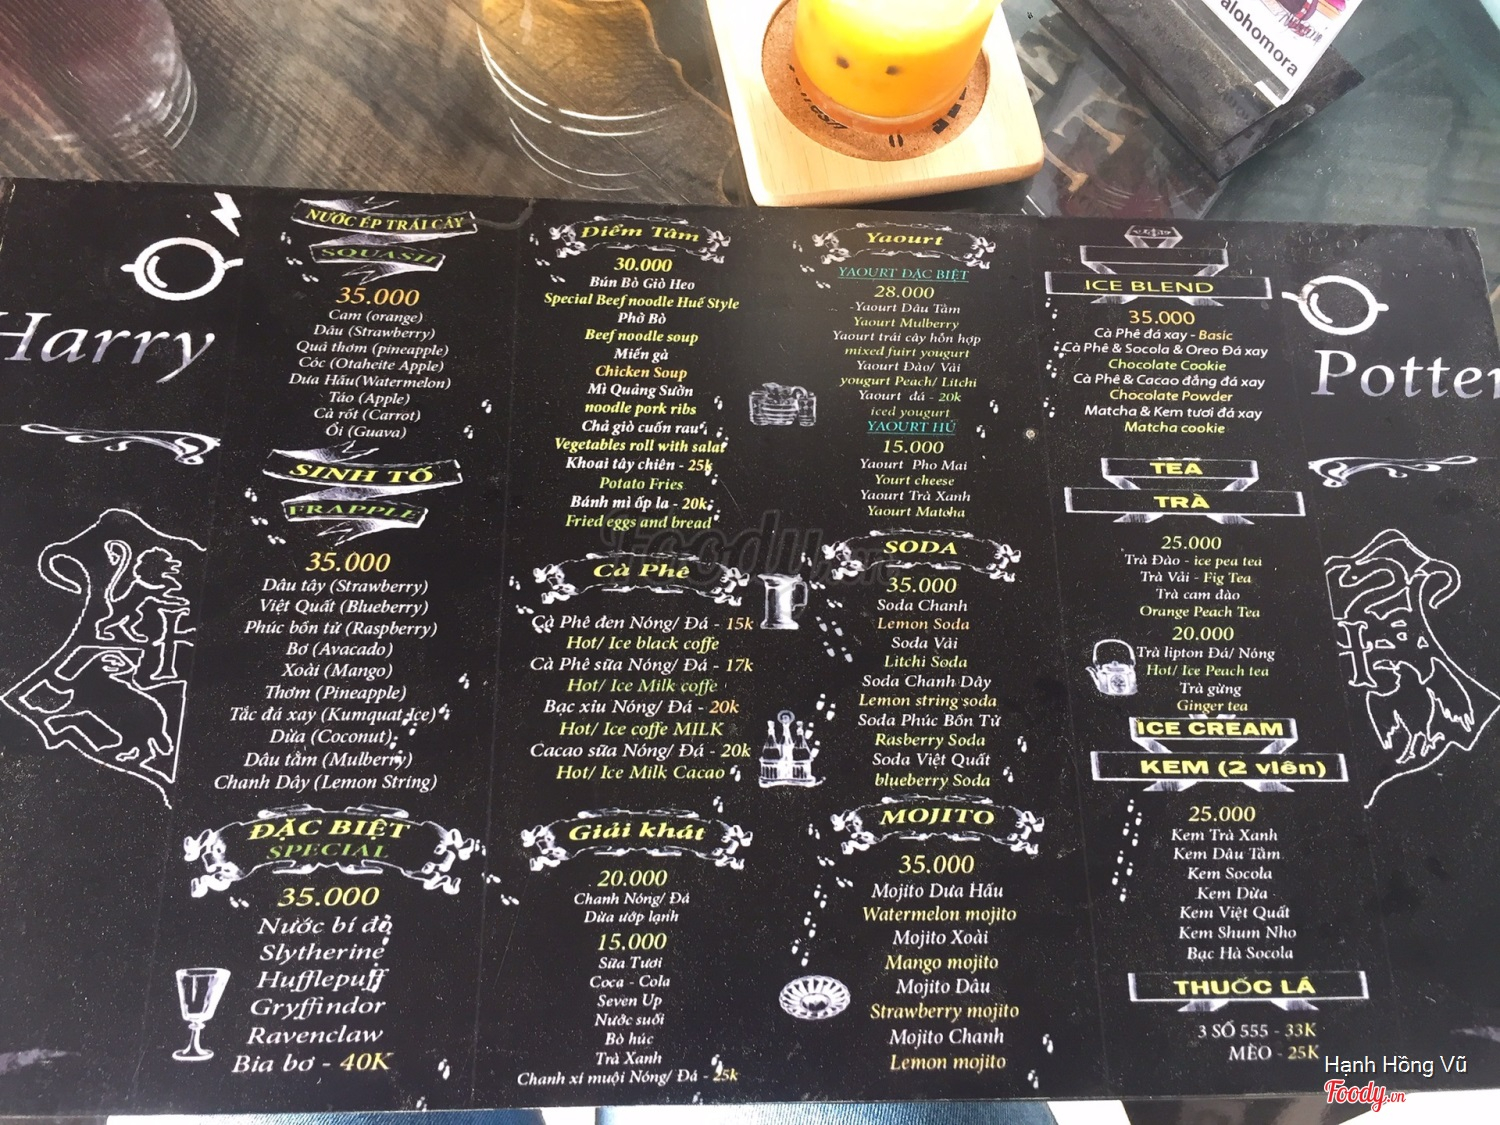 alohomora
Harry
Potter
NƯỚC ÉP TRÁI CÂY
SQUASH
35.000
Cam (orange)
Dâu (Strawberry)
Quả thơm (pineapple)
Cóc (Otaheite Apple)
Dưa Hấu(Watermelon)
Táo (Apple)
Cà rốt (Carrot)
Ổi (Guava)
SINH TỐ
FRAPPLE
35.000
Dâu tây (Strawberry)
Việt Quất (Blueberry)
Phúc bồn tử (Raspberry)
Bơ (Avacado)
Xoài (Mango)
Thơm (Pineapple)
Tắc đá xay (Kumquat Ice)
Dừa (Coconut)
Dâu tằm (Mulberry)
Chanh Dây (Lemon String)
ĐẶC BIỆT
SPECIAL
35.000
Nước bí đỏ
Slytherine
Hufflepuff
Gryffindor
Ravenclaw
Bia bơ - 40K
Điểm Tâm
30.000
Bún Bò Giò Heo
Special Beef noodle Huế Style
Phở Bò
Beef noodle soup
Miến gà
Chicken Soup
Mì Quảng Sườn
noodle pork ribs
Chả giò cuốn rau
Vegetables roll with salat
Khoai tây chiên - 25k
Potato Fries
Bánh mì ốp la - 20k
Fried eggs and bread
Cà Phê
Cà Phê đen Nóng/ Đá - 15k
Hot/ Ice black coffe
Cà Phê sữa Nóng/ Đá - 17k
Hot/ Ice Milk coffe
Bạc xỉu Nóng/ Đá - 20k
Hot/ Ice coffe MILK
Cacao sữa Nóng/ Đá - 20k
Hot/ Ice Milk Cacao
Giải khát
20.000
Chanh Nóng/ Đá
Dừa ướp lạnh
15.000
Sữa Tươi
Coca - Cola
Seven Up
Nước suối
Bò húc
Trà Xanh
Chanh xí muội Nóng/ Đá - 25k
Yaourt
YAOURT ĐẶC BIỆT
28.000
Yaourt Dâu Tằm
Yaourt Mulberry
Yaourt trái cây hỗn hợp
mixed fuirt yougurt
Yaourt Đào/ Vải
yougurt Peach/ Litchi
Yaourt đá - 20k
iced yougurt
YAOURT HỦ
15.000
Yaourt Pho Mai
Yourt cheese
Yaourt Trà Xanh
Yaourt Matcha
SODA
35.000
Soda Chanh
Lemon Soda
Soda Vải
Litchi Soda
Soda Chanh Dây
Lemon string soda
Soda Phúc Bồn Tử
Rasberry Soda
Soda Việt Quất
blueberry Soda
MOJITO
35.000
Mojito Dưa Hấu
Watermelon mojito
Mojito Xoài
Mango mojito
Mojito Dâu
Strawberry mojito
Mojito Chanh
Lemon mojito
ICE BLEND
35.000
Cà Phê đá xay - Basic
Cà Phê & Socola & Oreo Đá xay
Chocolate Cookie
Cà Phê & Cacao đắng đá xay
Chocolate Powder
Matcha & Kem tươi đá xay
Matcha cookie
TEA
TRÀ
25.000
Trà Đào - ice pea tea
Trà Vải - Fig Tea
Trà cam đào
Orange Peach Tea
20.000
Trà lipton Đá/ Nóng
Hot/ Ice Peach tea
Trà gừng
Ginger tea
ICE CREAM
KEM (2 viên)
25.000
Kem Trà Xanh
Kem Dâu Tằm
Kem Socola
Kem Dừa
Kem Việt Quất
Kem Shum Nho
Bạc Hà Socola
THUỐC LÁ
3 SỐ 555 - 33K
MÈO - 25K
Foody.vn
Hạnh Hồng Vũ
Foody.vn